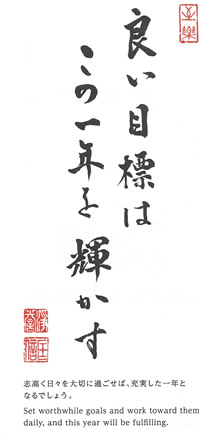 良い目標は
この一年を輝かす
志高く日々を大切に過ごせば、充実した一年と
なるでしょう。
Set worthwhile goals and work toward them
daily, and this year will be fulfilling.